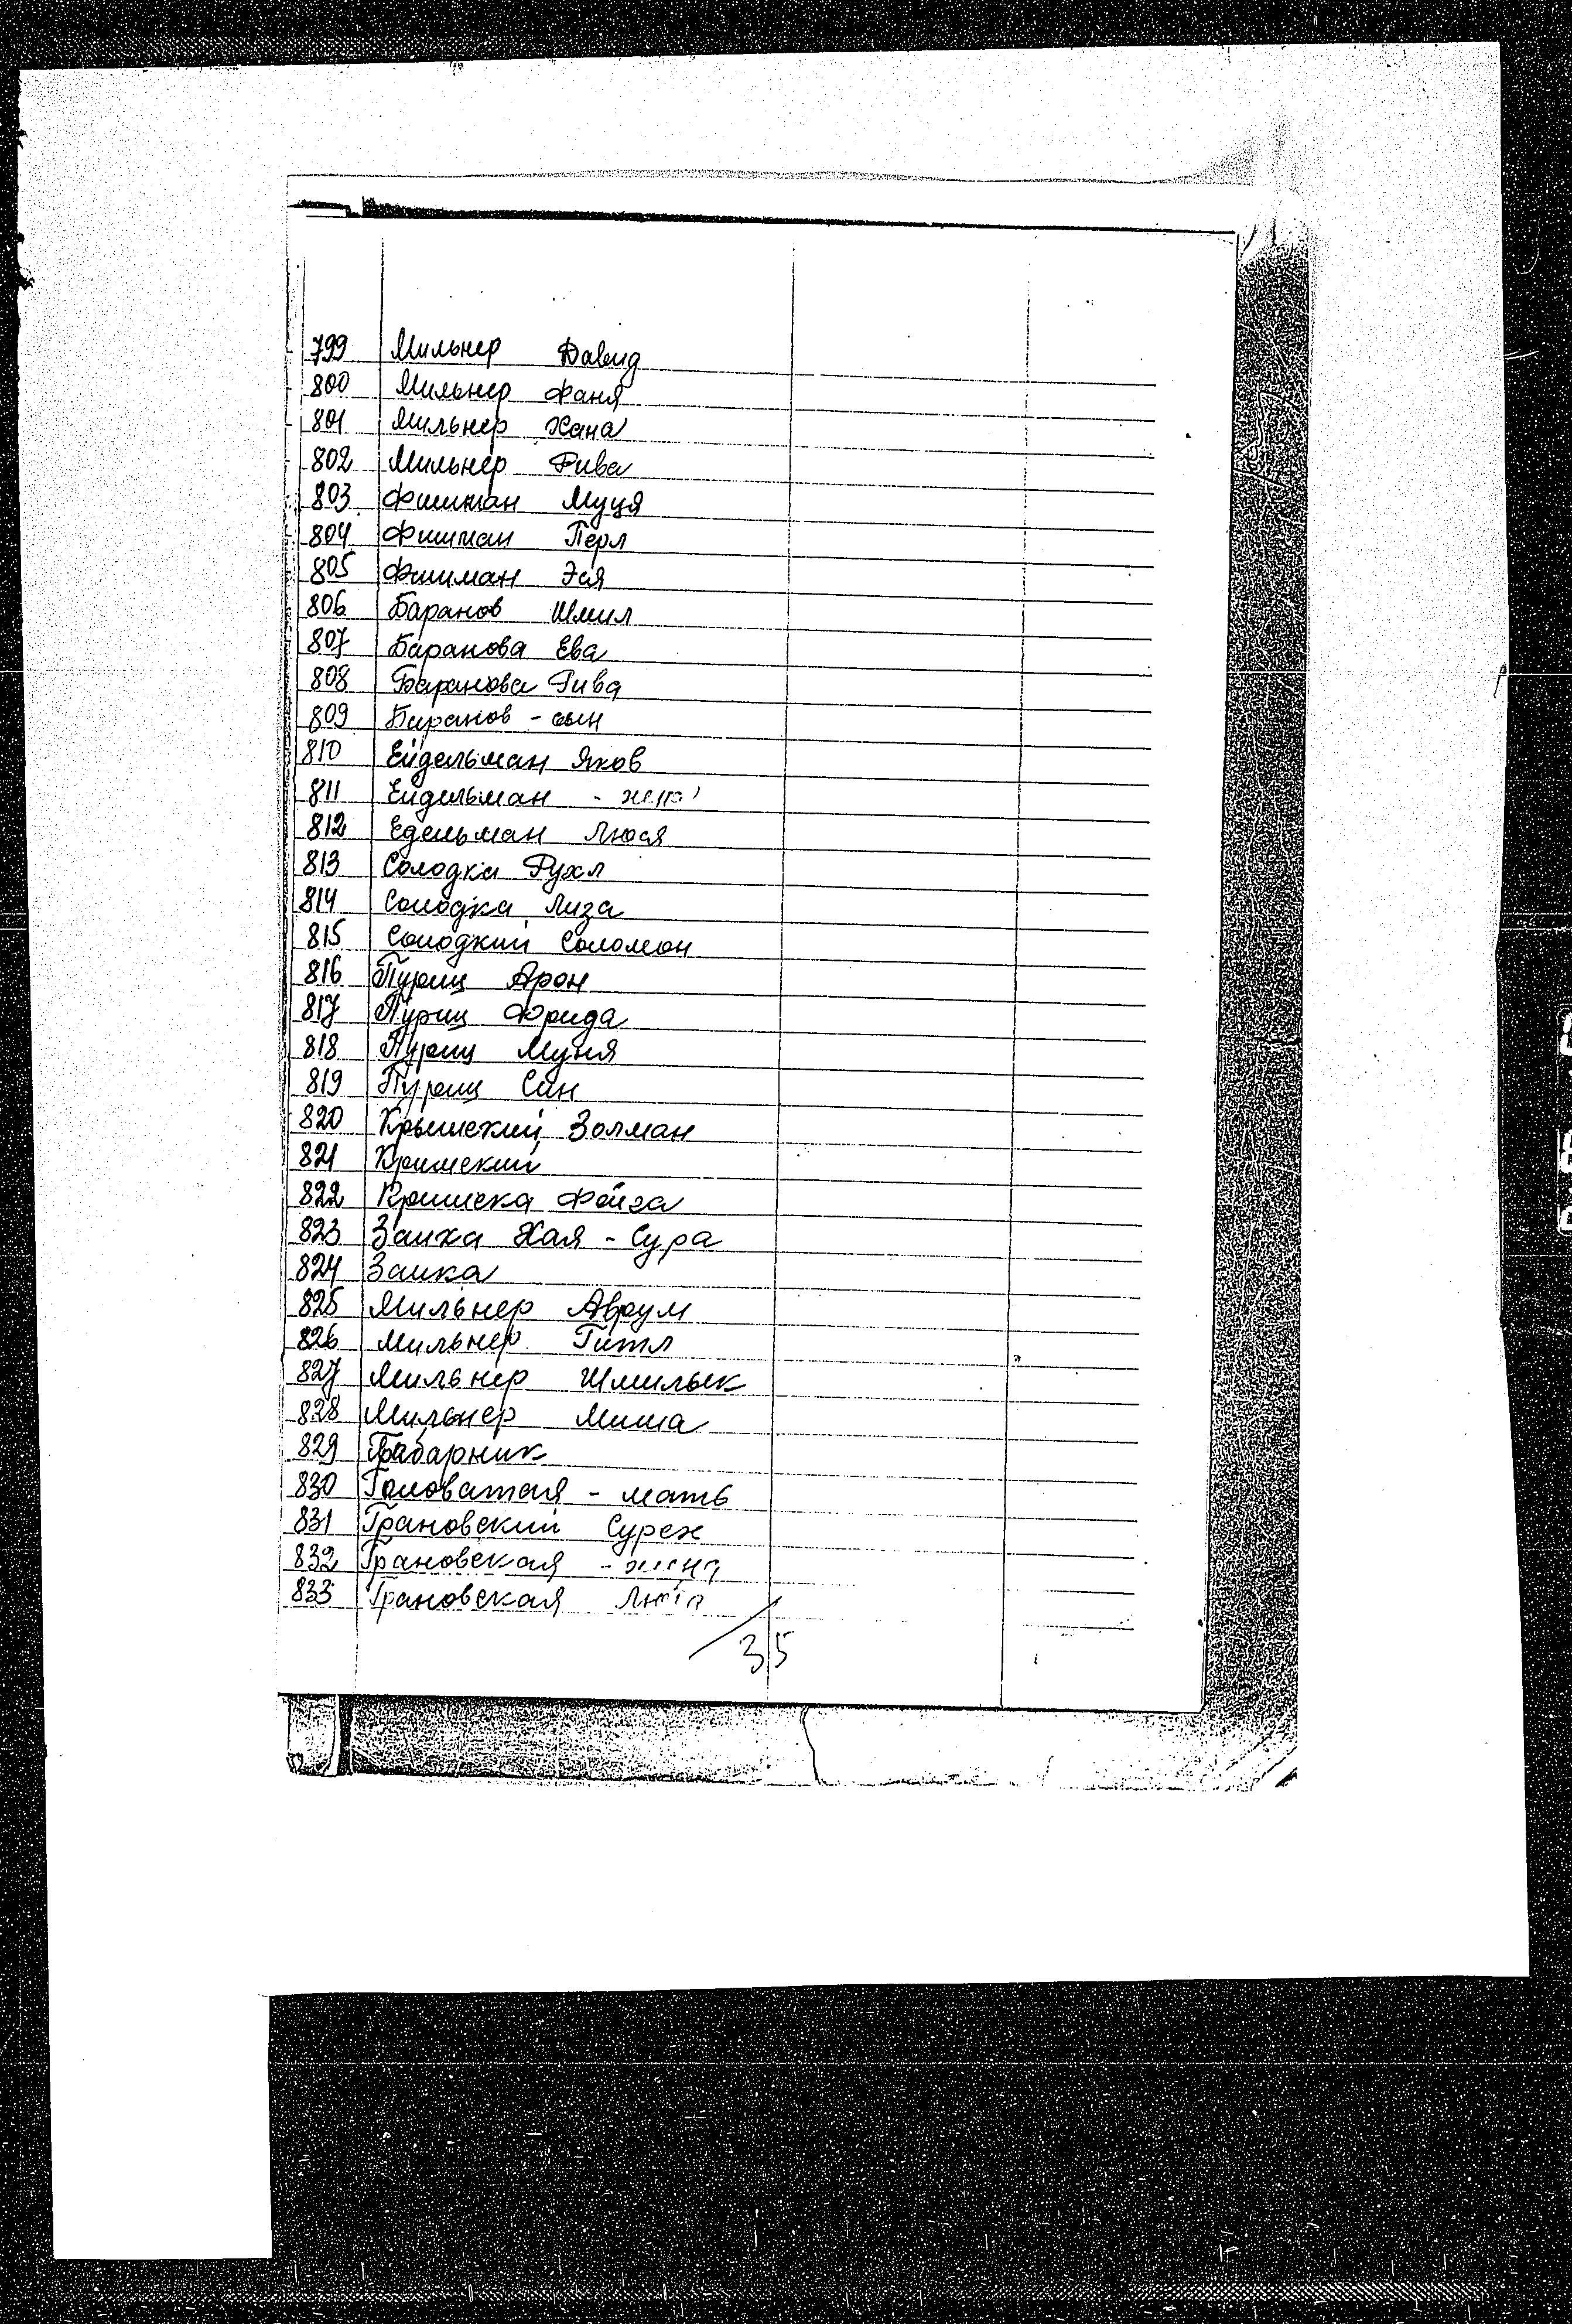 799 Мильнер Давид
800 Мильнер Фаня
801 Мильнер Хана
802 Мильнер Рива
803 Фишман Муця
804 Фишман Перл
805 Фишман Эся
806 Баранов Шмил
807 Баранова Ева
808 Баранова Рива
809 Баранов - сын
810 Ейдельман Яков
811 Ейдельман - жена
812 Едельман Люся
813 Солодка Рухл
814 Солодка Лиза
815 Солодкий Соломон
816 Пуриц Арон
817 Пуриц Фрида
818 Пуриц Муня
819 Пуриц Син
820 Крымский Золман
821 Кримский
822 Кримска Фейга
823 Заика Хая - Сура
824 Заика
825 Мильнер Аврум
826 Мильнер Гитл
827 Мильнер Шмилык
828 Мильнер Миша
829 Табарник
830 Головатая - мать
831 Грановский Сурех
832 Грановская - жена
833 Грановская
35